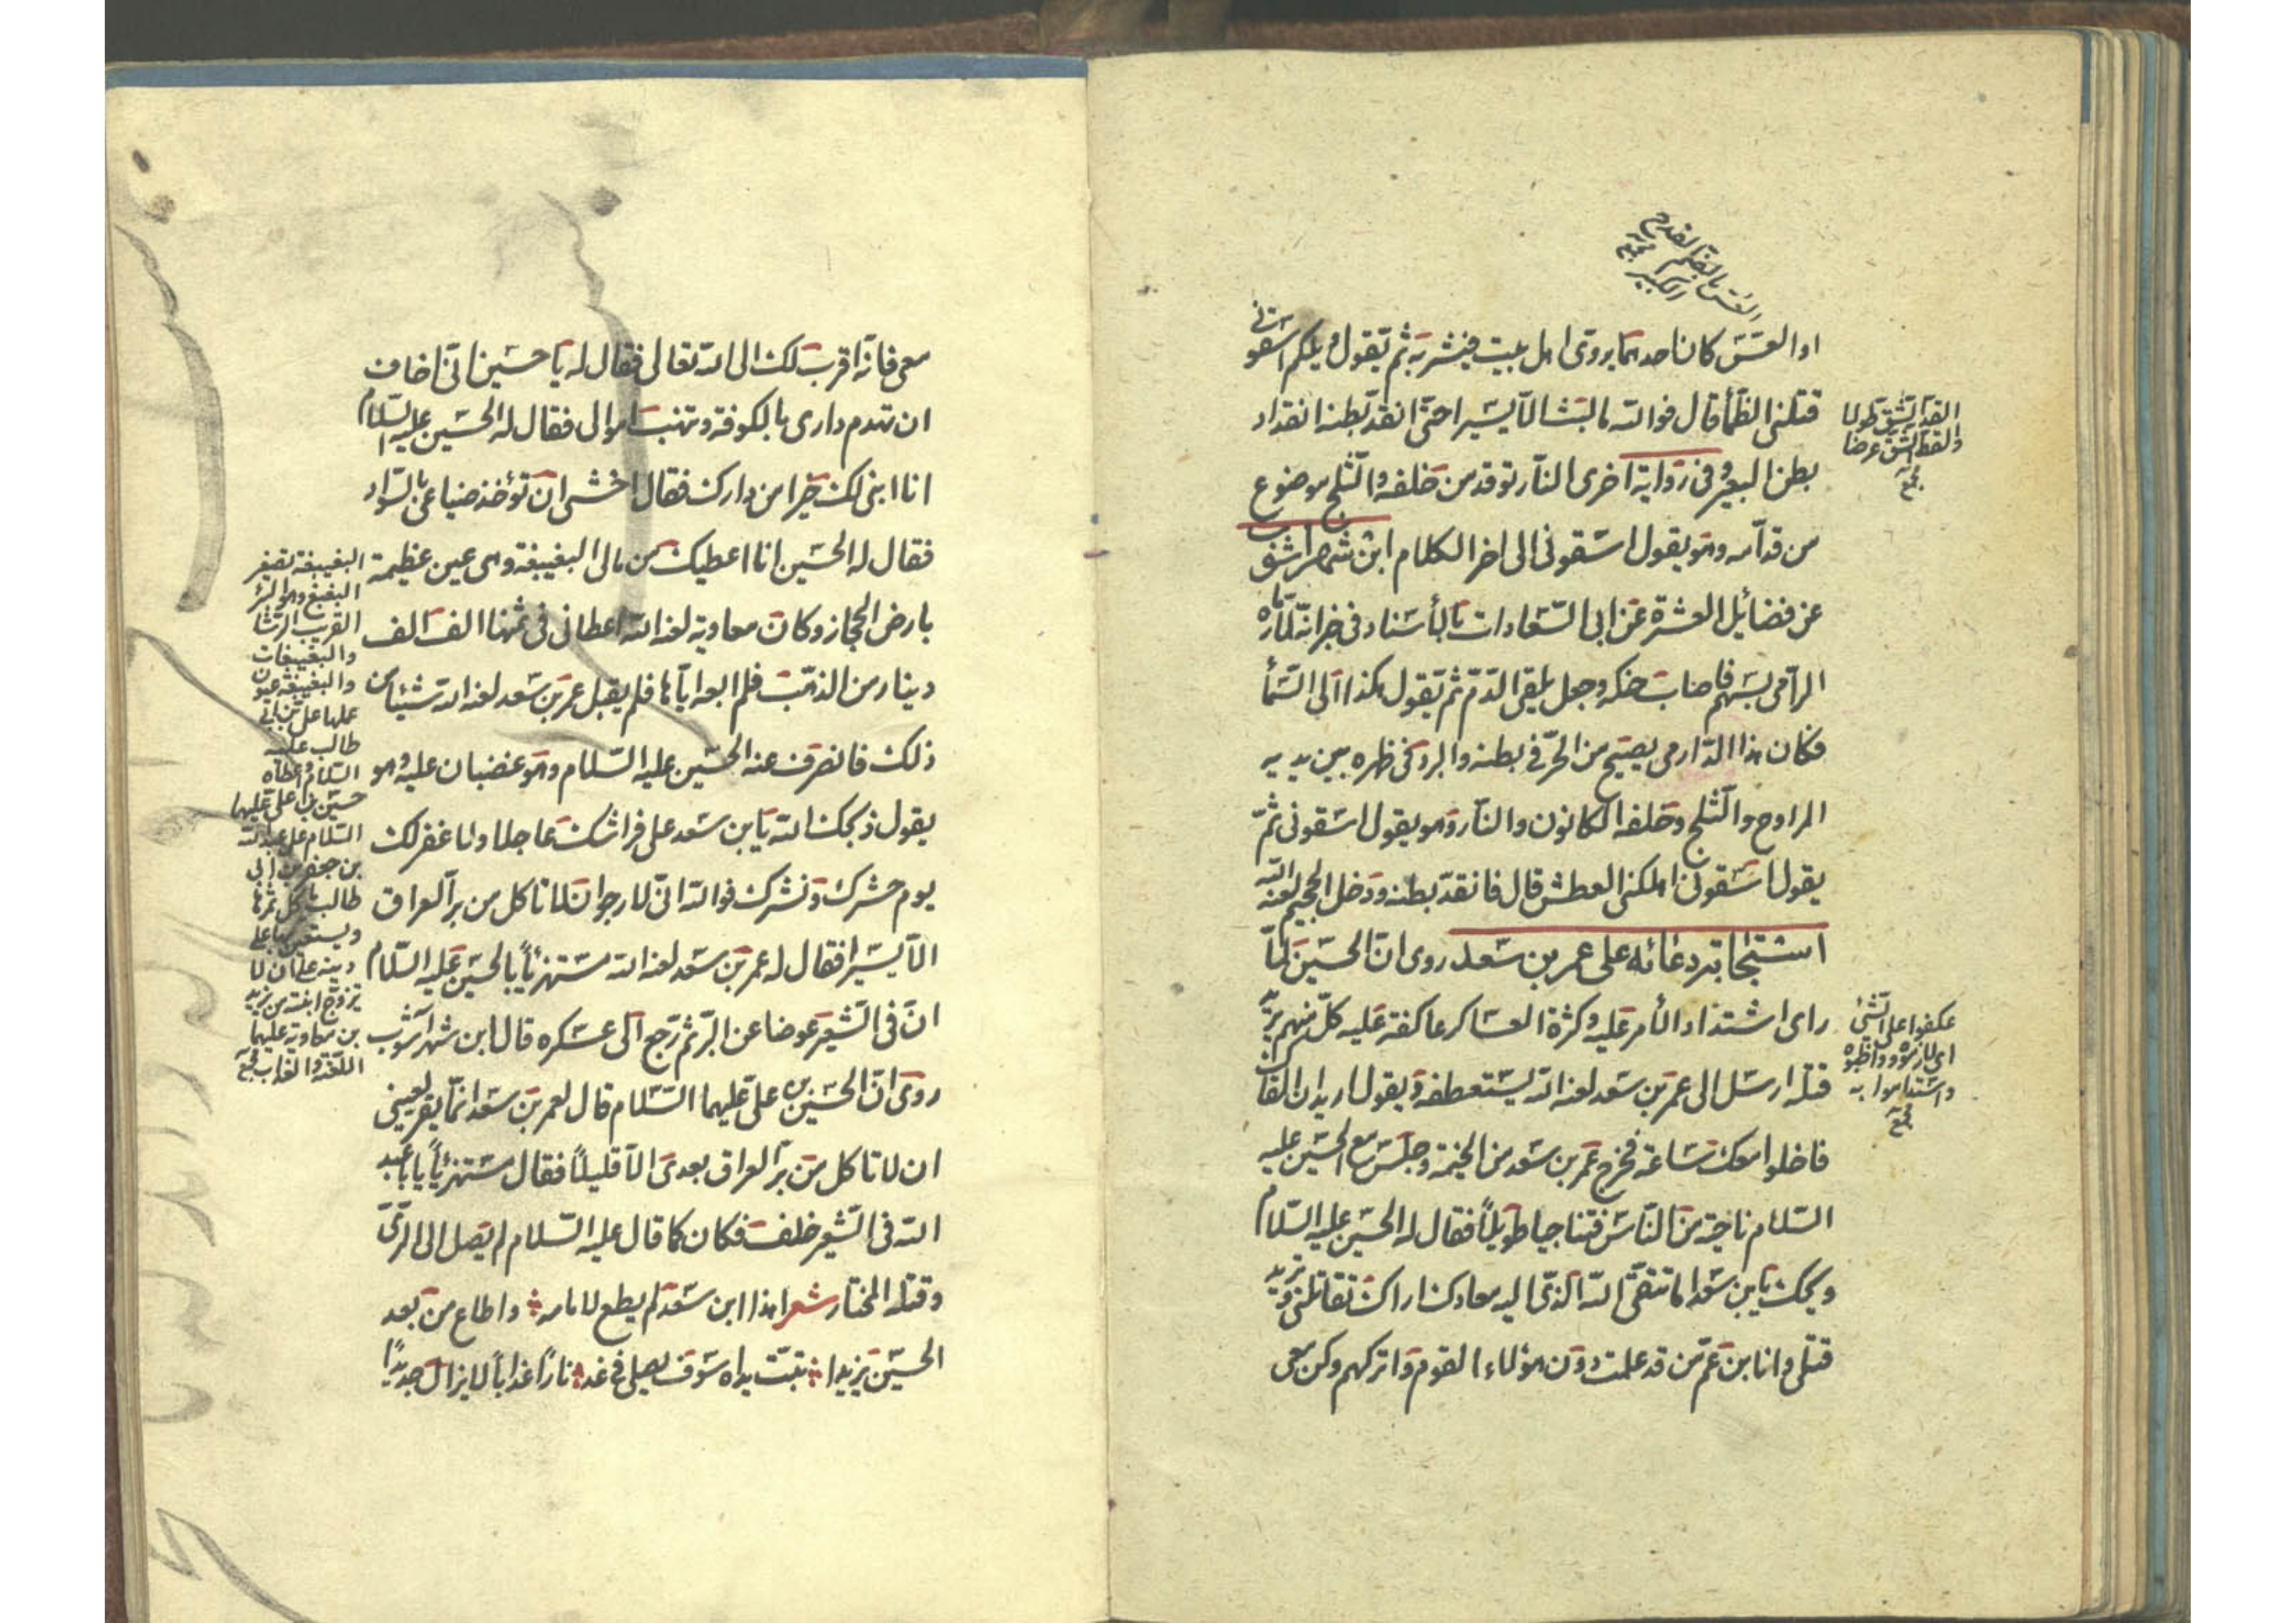 العس بالضم القدح
الكبير
او العسّ كان احدهما يروى اهل بيت فيشربه ثم يقول ويلكم اسقونى
قتلنى الظمأ قال فوالله ما لبث الا يسيرا حتى انقدّ بطنه انقداد
بطن البعير وفى رواية اخرى النار توقد من خلفه والثلج موضوع
من قدامه وهو يقول اسقونى الى اخر الكلام ابن شهراشوب
عن فضائل العشرة عن ابى السعادات بالأسناد فى خبر انه لما رماه
الرامى بسهم فاصاب حنكه وجعل يلقى الدم ثم يقول هكذا الى السمأ
فكان هذا الدارمى يصيح من الحر فى بطنه والبرد فى ظهره بين يديه
المراوح والثلج وخلفه الكانون والنار وهو يقول اسقونى ثم
يقول اسقونى اهلكنى العطش قال فانقدّ بطنه ودخل الجحيم لعنه الله
استجابة دعائه على عمر بن سعد روى ان الحسين لما
راى اشتداد الأمر عليه وكثرة العساكر عاكفة عليه كل منهم يريد
قتله ارسل الى عمر بن سعد لعنه الله يستعطفه ويقول اريد ان القاك
فاخلوا معك ساعة فخرج عمر بن سعد من الخيمة وجلس مع الحسين عليه
السلام ناحية من الناس فتناجيا طويلاً فقال له الحسين عليه السلام
ويحك يابن سعد اما تتقى الله الذى اليه معادك اراك تقاتلنى وتريد
قتلى وانا بن عم من قد علمت دون هؤلاء القوم واتركهم وكن معى
القد الشق طولا
والقط الشق عرضا
مجمع
عكفوا على الشئ
اى لازموه وواظبوه
واستداموا به
مجمع
معى فانه اقرب لك الى الله تعالى فقال له يا حسين انى اخاف
ان تهدم دارى بالكوفة وتنهب اموالى فقال له الحسين عليه السلام
انا ابنى لك خيرا من دارك فقال اخشى ان تؤخذ ضياعى بالسواد
فقال له الحسين انا اعطيك من مالى البغيبغة وهى عين عظيمة
بارض الحجاز وكان معاوية لعنه الله اعطانى فى ثمنها الف الف
دينار من الذهب فلم ابعه اياها فلم يقبل عمر بن سعد لعنه الله شيئا من
ذلك فانصرف عنه الحسين عليه السلام وهو غضبان عليه وهو
يقول ذبحك الله يابن سعد على فراشك عاجلا ولا غفر لك
يوم حشرك ونشرك فوالله انى لارجوا ان لا تاكل من بر العراق
الا يسيرا فقال له عمر بن سعد لعنه الله مستهزئاً بالحسين عليه السلام
ان فى الشعير عوضا عن البر ثم رجع الى عسكره قال ابن شهراشوب
روى ان الحسين بن على عليهما السلام قال لعمر بن سعد انما يقر لعينى
ان لا تاكل من بر العراق بعدى الا قليلاً فقال مستهزئاً يا ابا عبد
الله فى الشعير خلف فكان كما قال عليه السلام لم يصل الى الرى
وقتله المختار شعر هذا ابن سعد لم يطع لامامه واطاع من بعد
الحسين يزيدا تبت يداه سوف يصلى فى غد ناراً عذاباً لا يزال جديدًا
البغيبغة تصغير
البغبغ وهو البئر
القريب الرشا
والبغيبغات
والبغيبغة عيون
عملها على بن ابى
طالب عليه
السلام واعطاه
حسين بن على عليهما
السلام على عبد الله
بن جعفر بن ابى
طالب ياكل ثمرها
ويستعين بها على
دينه على ان لا
تزوج ابنته من يزيد
بن معاوية عليهما
اللعنة والعذاب مجمع